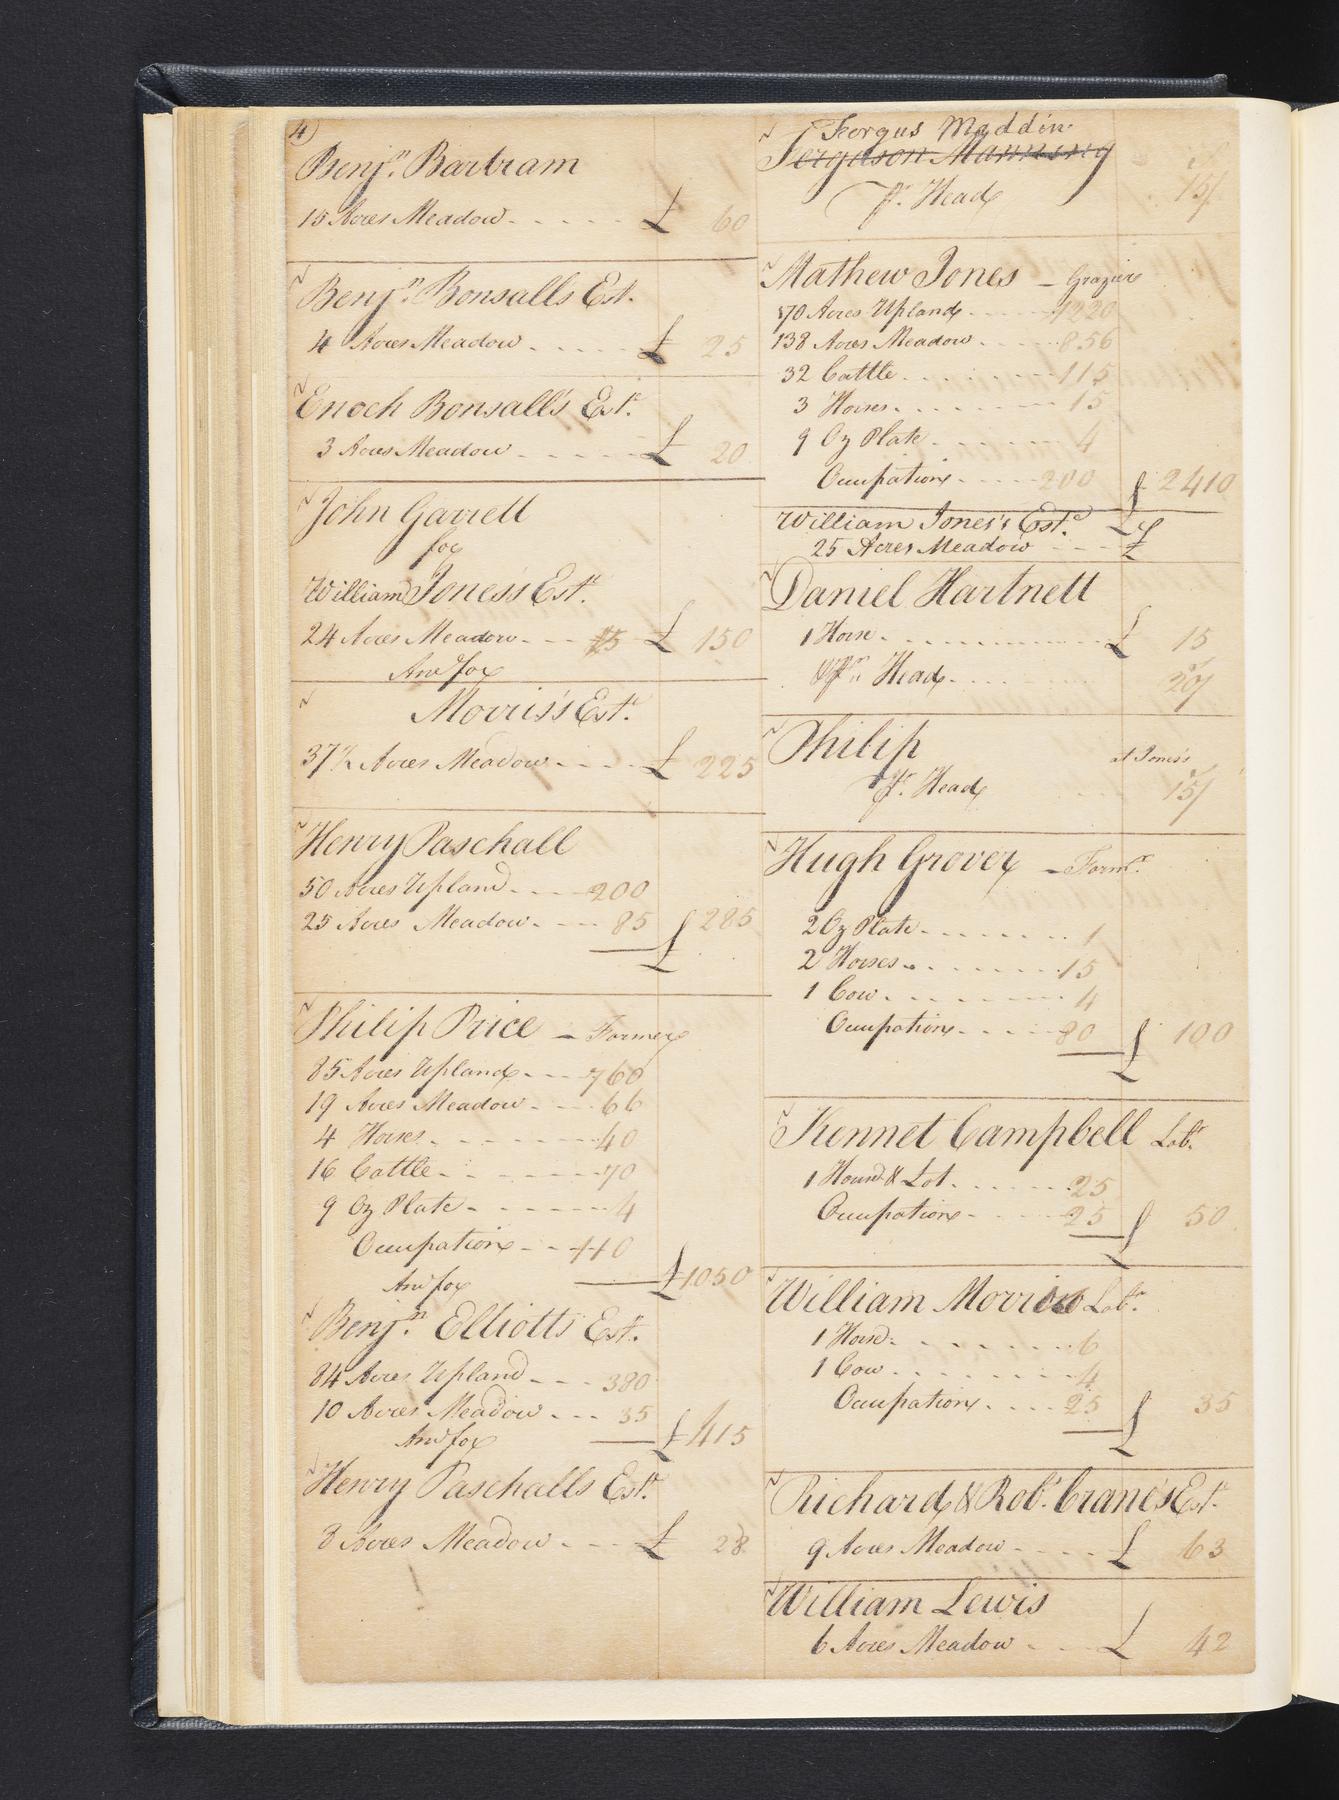 4
Benjn. Bartram
15 Acres Meadow - - - - - £ 60
Benjn. Bonsalls Est.
4 Acres Meadow - - - - - £ 25
Enoch Bonsall's Este.
3 Acres Meadow - - - - - £ 20
John Garrett
for
William Jones's Este.
24 Acres Meadow - - - £ 150
And for
Morris's Este.
37½ Acres Meadow - - - - £ 225
Henry Paschall
50 Acres Upland - - - - 200
25 Acres Meadow - - - 85 £ 285
Philip Price - Farmer
85 Acres Upland - - - 760
19 Acres Meadow - - - 66
4 Horses - - - - - - 40
16 Cattle - - - - - - 70
9 Oz Plate - - - - - - 4
Occupation - - - 110
And for £ 1050
Benjn. Elliotts Est.
84 Acres Upland - - - 380
10 Acres Meadow - - - 35
And for £ 415
Henry Paschalls Este.
8 Acres Meadow - - - - £ 28
Fergus Maddin
Ferguson Manning
Pr. Head 15/
Mathew Jones - Grazier
170 Acres Upland - - - - 1220
138 Acres Meadow - - - - 856
32 Cattle - - - - - - 115
3 Horses - - - - - - - 15
9 Oz Plate - - - - - - 4
Occupation - - - - 200 £ 2410
William Jones's Este.
25 Acres Meadow - - - £
Daniel Hartnett
1 Horse - - - - - - - - - £ 15
Head - - - - - 20/
Philip at Jones's
Pr. Head 15/
Hugh Grover - Farmr.
2 Oz Plate - - - - - - - 1
2 Horses - - - - - - - 15
1 Cow - - - - - - - - 4
Occupation - - - - 80 £ 100
Kennet Campbell Labr.
1 House & Lot - - - - - - 25
Occupation - - - - - 25 £ 50
William Morris Labr.
1 Horse - - - - - - - - 6
1 Cow - - - - - - - - 4
Occupation - - - - 25 £ 35
Richard & Robt. Crane's Este.
9 Acres Meadow - - - - £ 63
William Lewis
6 Acres Meadow - - - £ 42